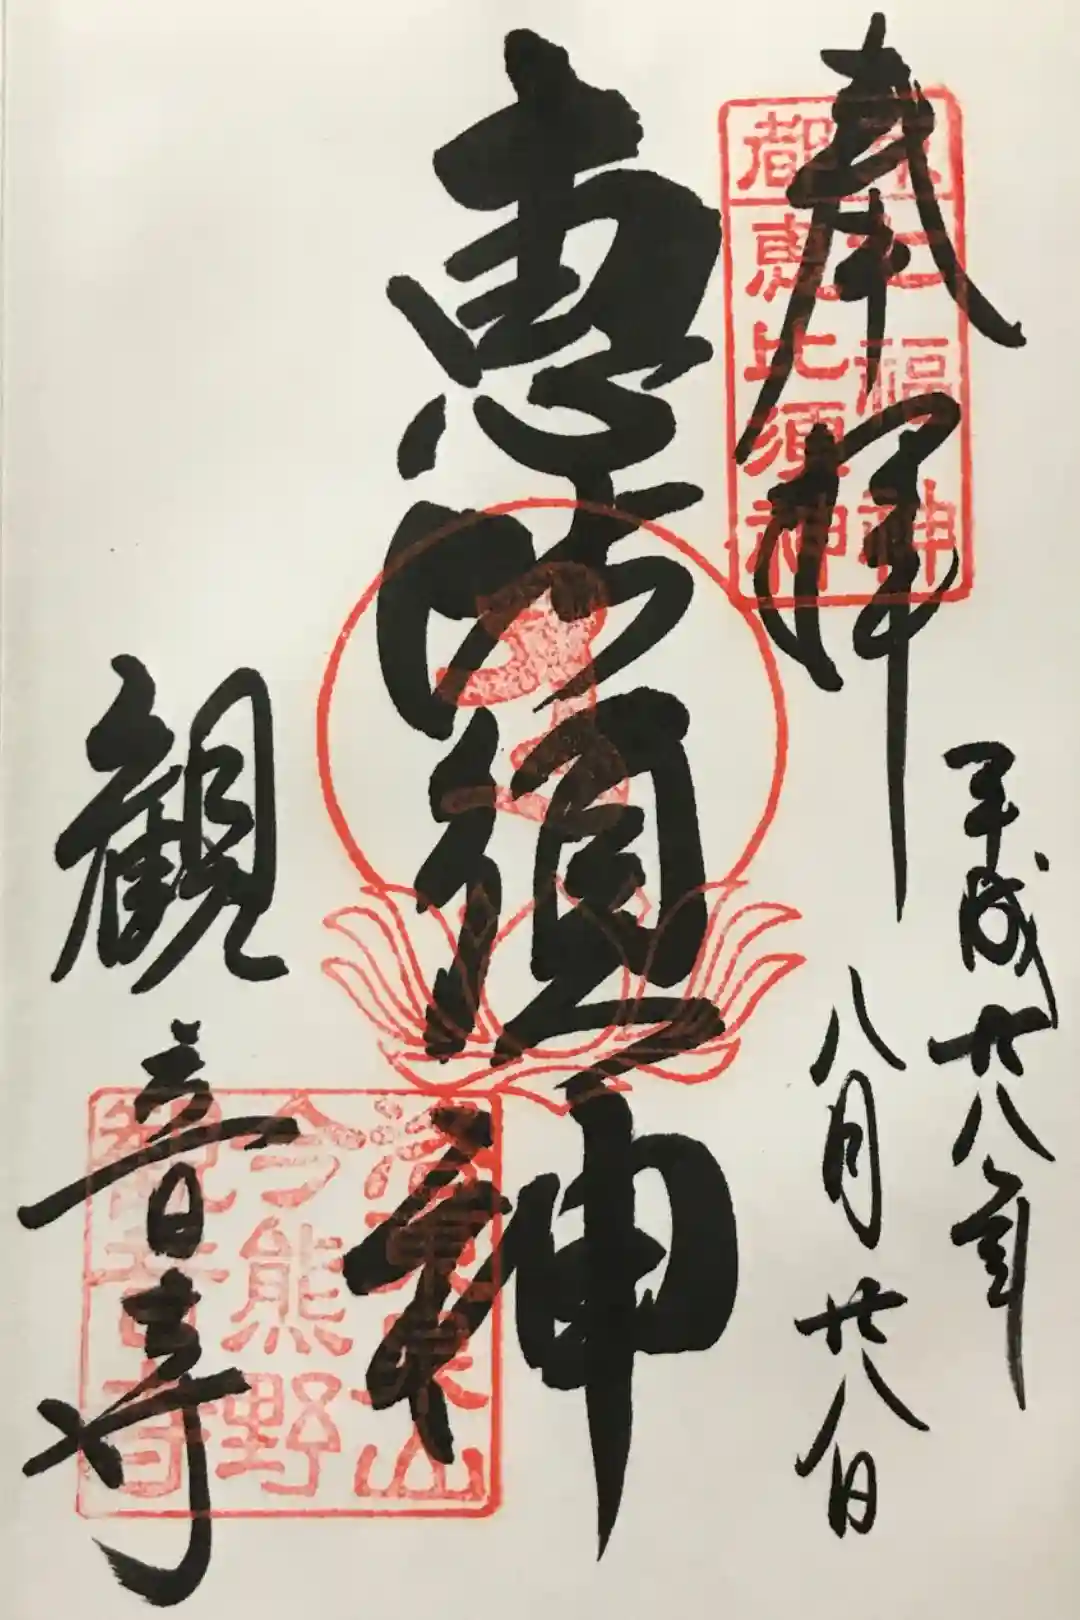 奉拝
京都
七福神
恵比須神
平成廿八年
八月廿八日
恵比須神
観音寺
洛東泉山
今熊野
觀音寺